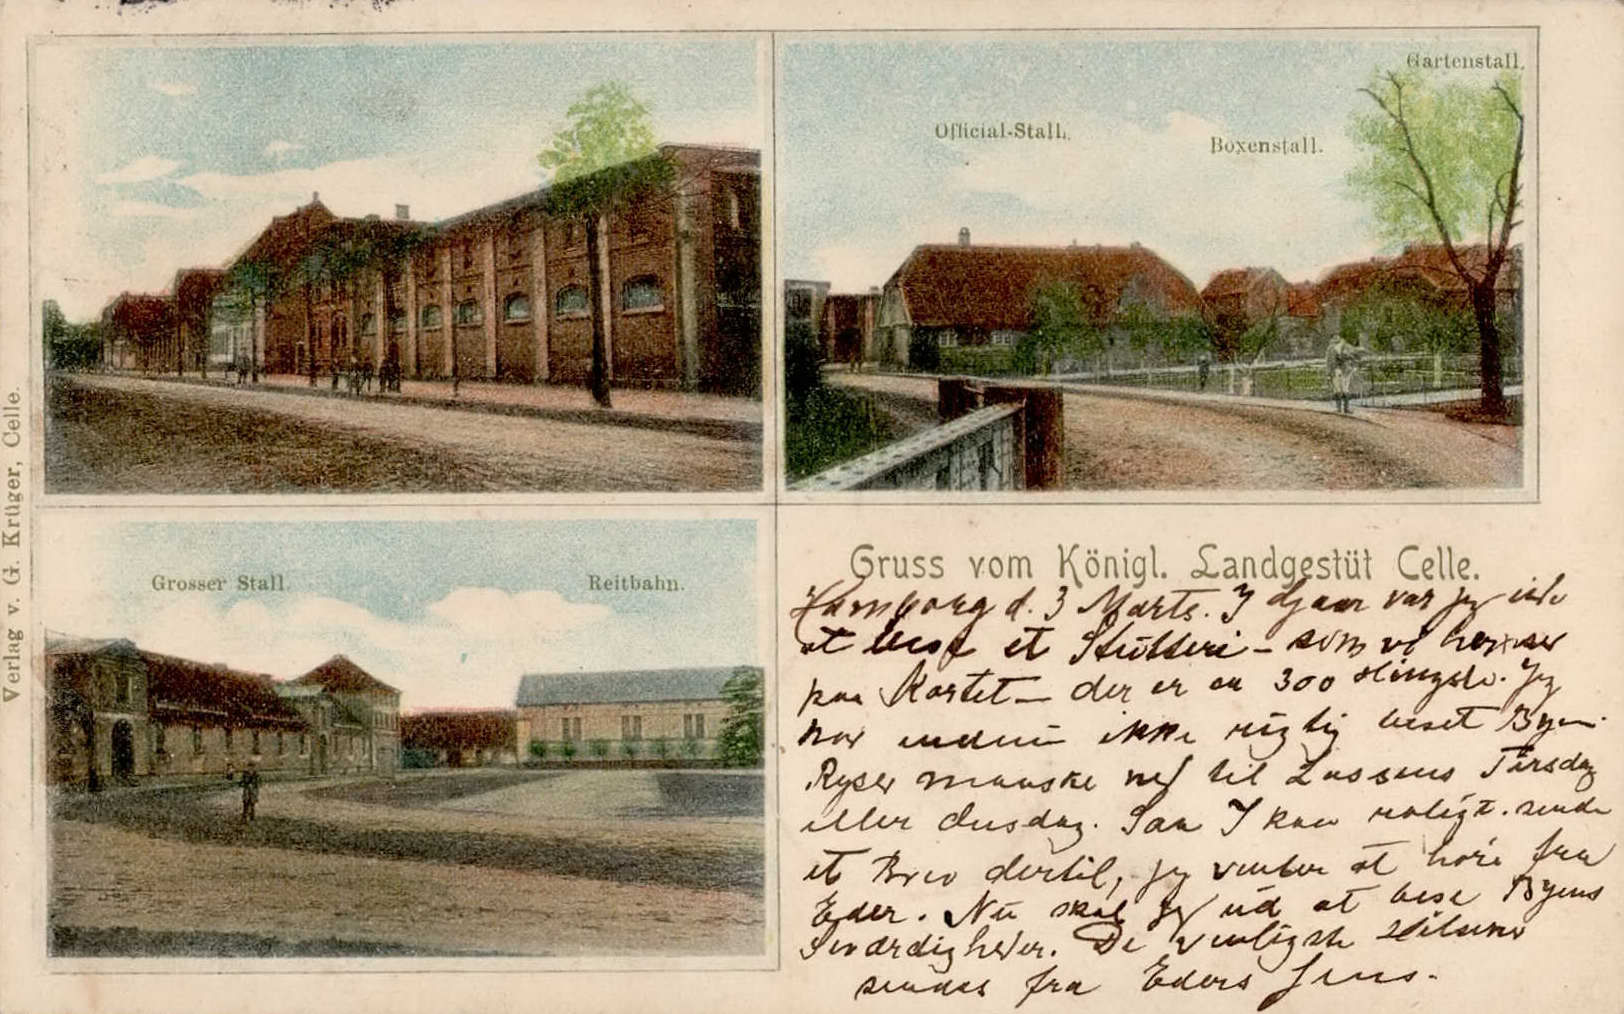 Gartenstall.
Official-Stall.
Boxenstall.
Grosser Stall.
Reitbahn.
Verlag v. G. Krüger, Celle.
Gruss vom Königl. Landgestüt Celle.
Hamborg d. 3 Marts. I Gaar var jeg ude
at bese et Stutteri – som vi her ser
paa Kortet – der er ca 300 Hingste. Jeg
har endnu ikke rigtig beset Byen.
Rejser maaske ned til Tirsdag
eller Onsdag. Saa I kan roligt sende
et Brev dertil, jeg venter at høre fra
Eder. Nu skal jeg ud at bese Byens
Seværdigheder. De venligste Hilsener
sendes fra Eders Jens.